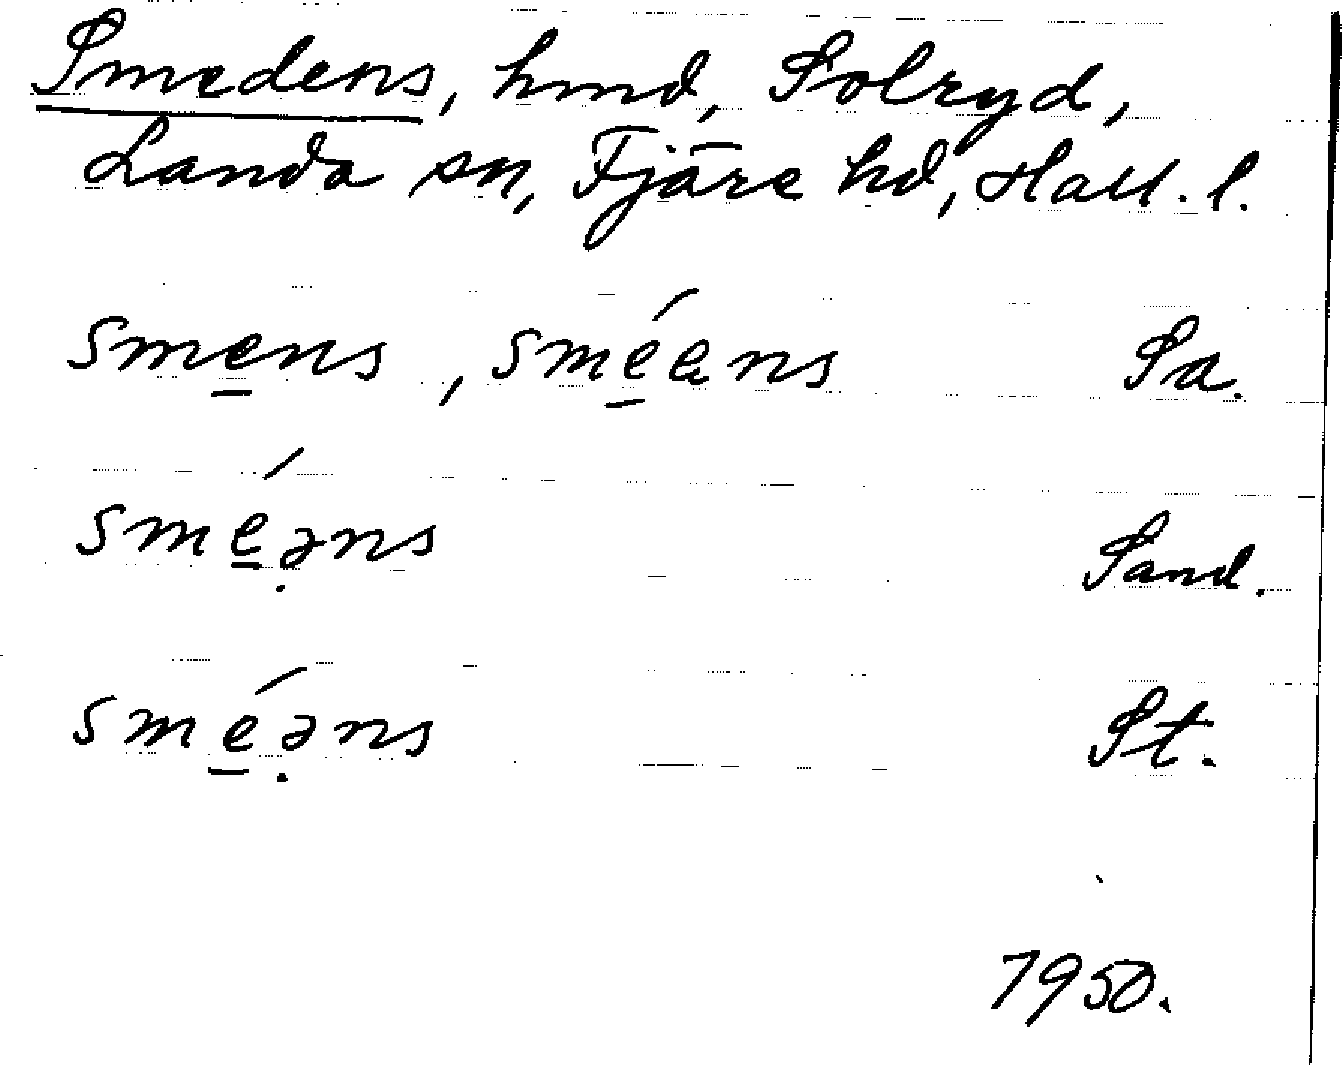 Smedens, hmd, Solryd,
Landa sn, Fjäre hd, Hall. l.
smens, sméens Sa.
sméəns Sand.
sméəns St.
1950.